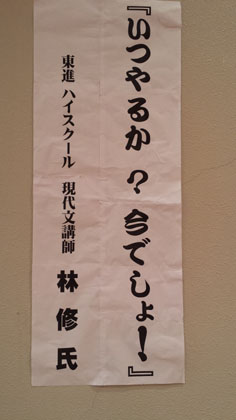 『いつやるか?今でしょ!』
東進 ハイスクール 現代文講師 林 修 氏